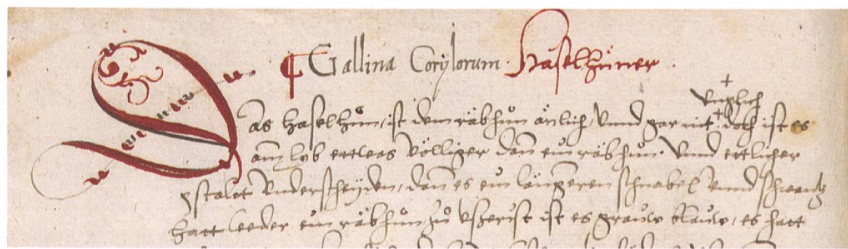 Gallina Corylorum. Haselhüner.
unglich
Das haselhůn, ist dem räbhůn änlich, Vnnd gar nit + doch ist es
am lyb ettwas völliger dann ein räbhůn. Vnnd ettlicher
gstalet Vnderscheyden, dann es ein längeren schnabel Vnnd schwantz
hatt weder ein räbhůn, zů vsserist ist es grauw blauw, es hatt